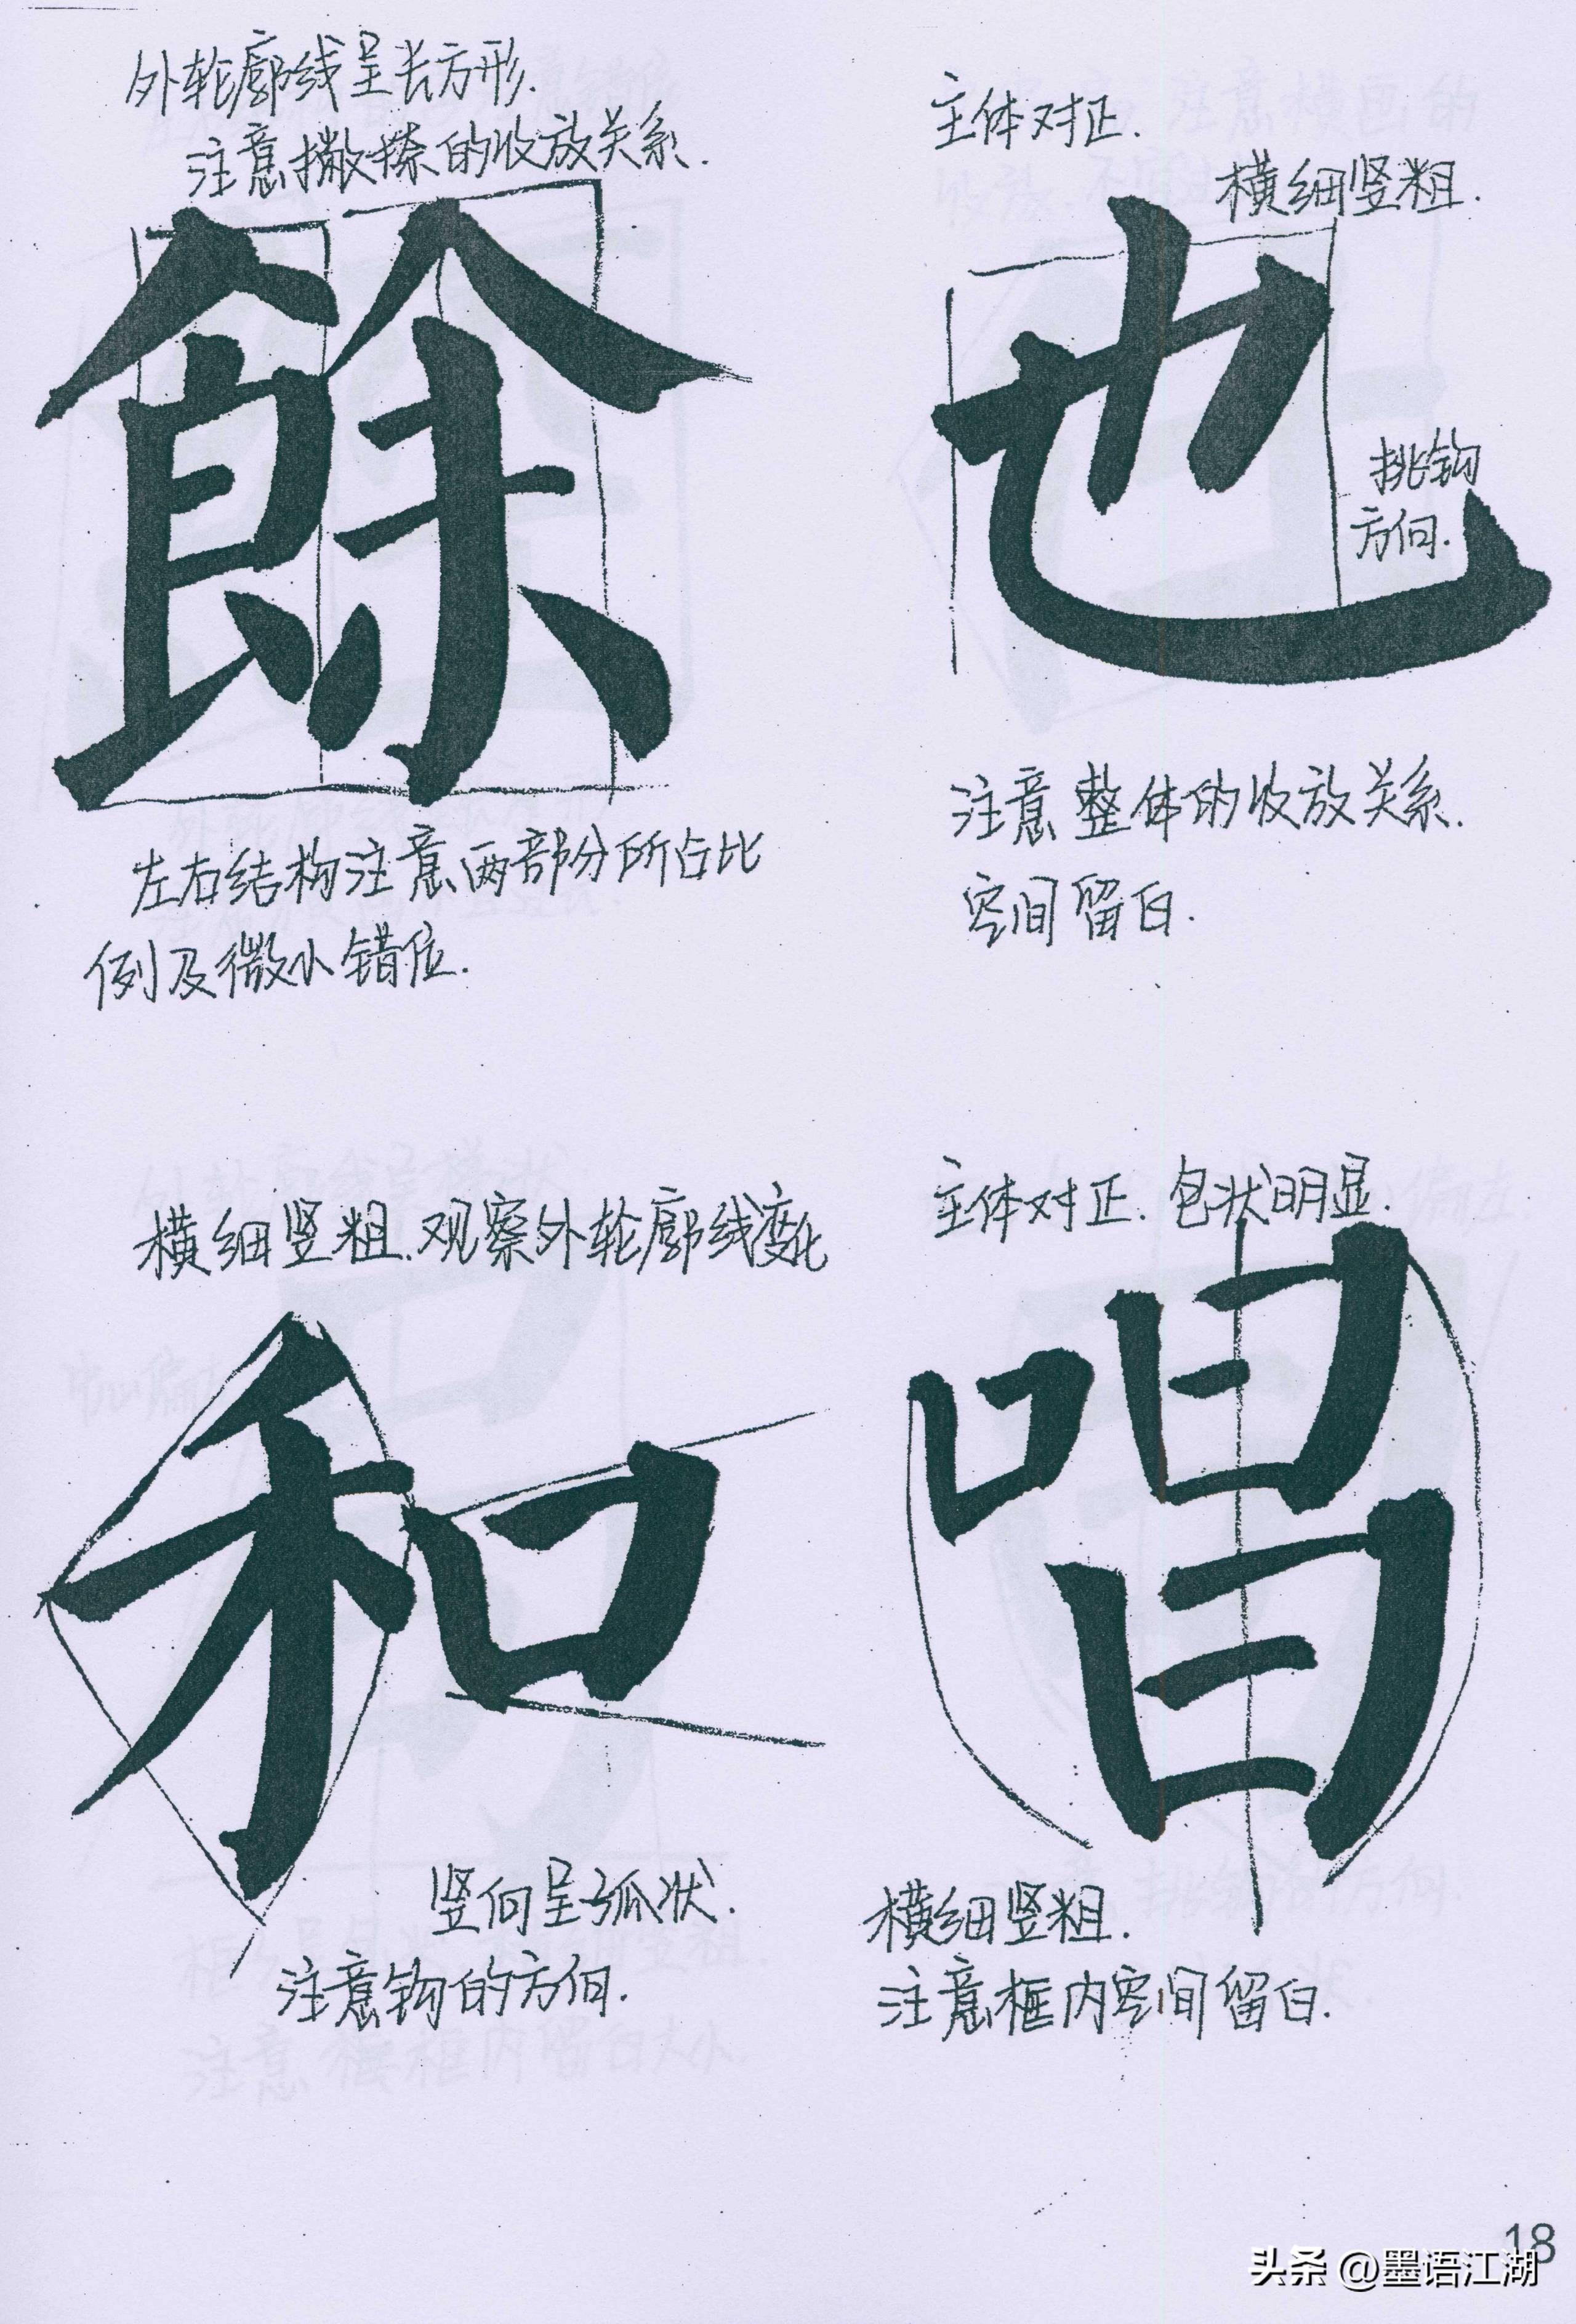 外轮廓线呈长方形.
注意撇捺的收放关系.
餘
左右结构注意两部分所占比
例及微小错位.
主体对正.
横细竖粗.
也
挑钩
方向.
注意整体的收放关系.
空间留白.
横细竖粗.观察外轮廓线变化
和
竖向呈弧状.
注意钩的方向.
主体对正.包状明显.
唱
横细竖粗.
注意框内空间留白.
18
头条 @墨语江湖